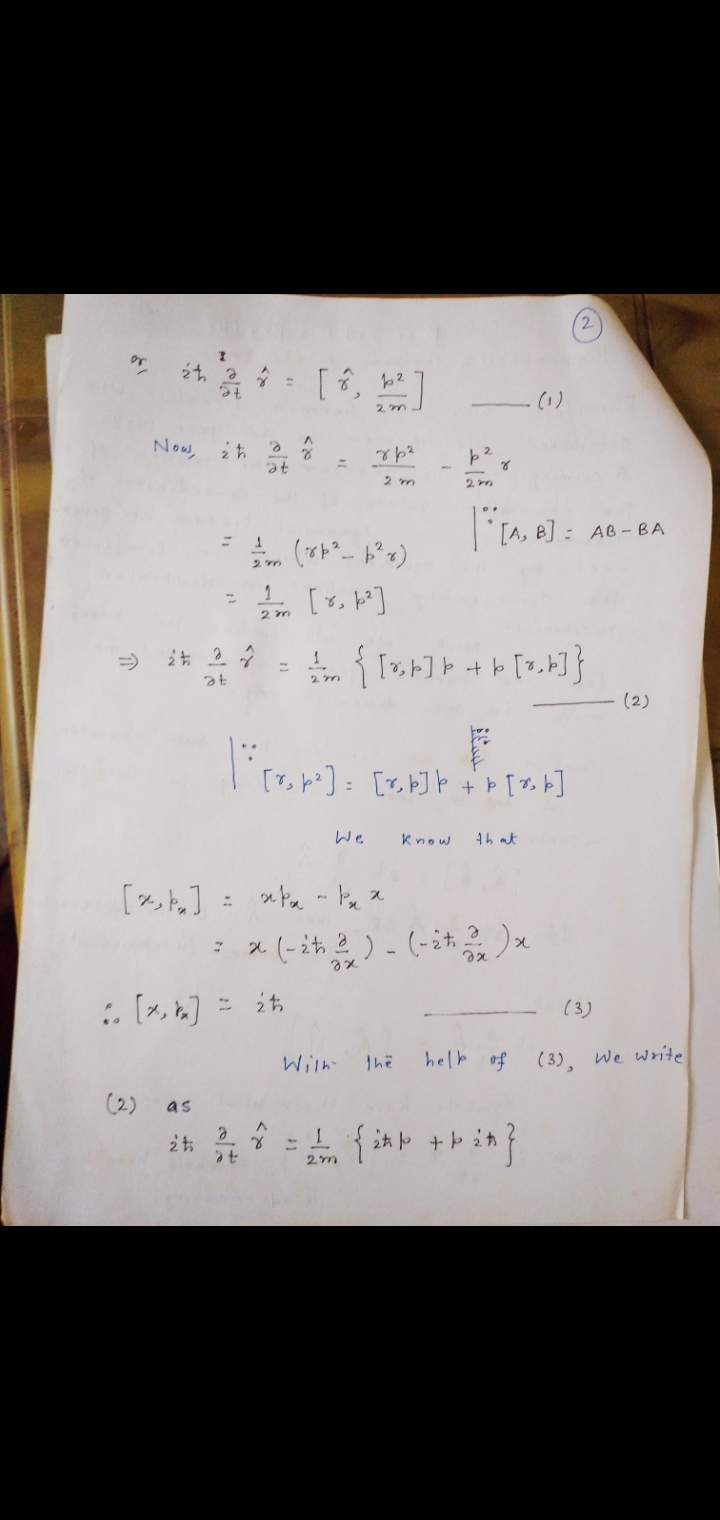 2
or iħ ∂/∂t r̂ = [r̂, p²/2m] —— (1)
Now, iħ ∂/∂t r̂ = rp²/2m - p²/2m r
| ∵ [A, B] = AB - BA
= 1/2m (rp² - p²r)
= 1/2m [r, p²]
⇒ iħ ∂/∂t r̂ = 1/2m {[r,p]p + p[r,p]}
—— (2)
| ∵ [r, p²] = [r,p]p + p[r,p]
We know that
[x, pₓ] = xpₓ - pₓx
= x(-iħ ∂/∂x) - (-iħ ∂/∂x)x
∴ [x, pₓ] = iħ —— (3)
With the help of (3), We write
(2) as
iħ ∂/∂t r̂ = 1/2m {iħp + p iħ}